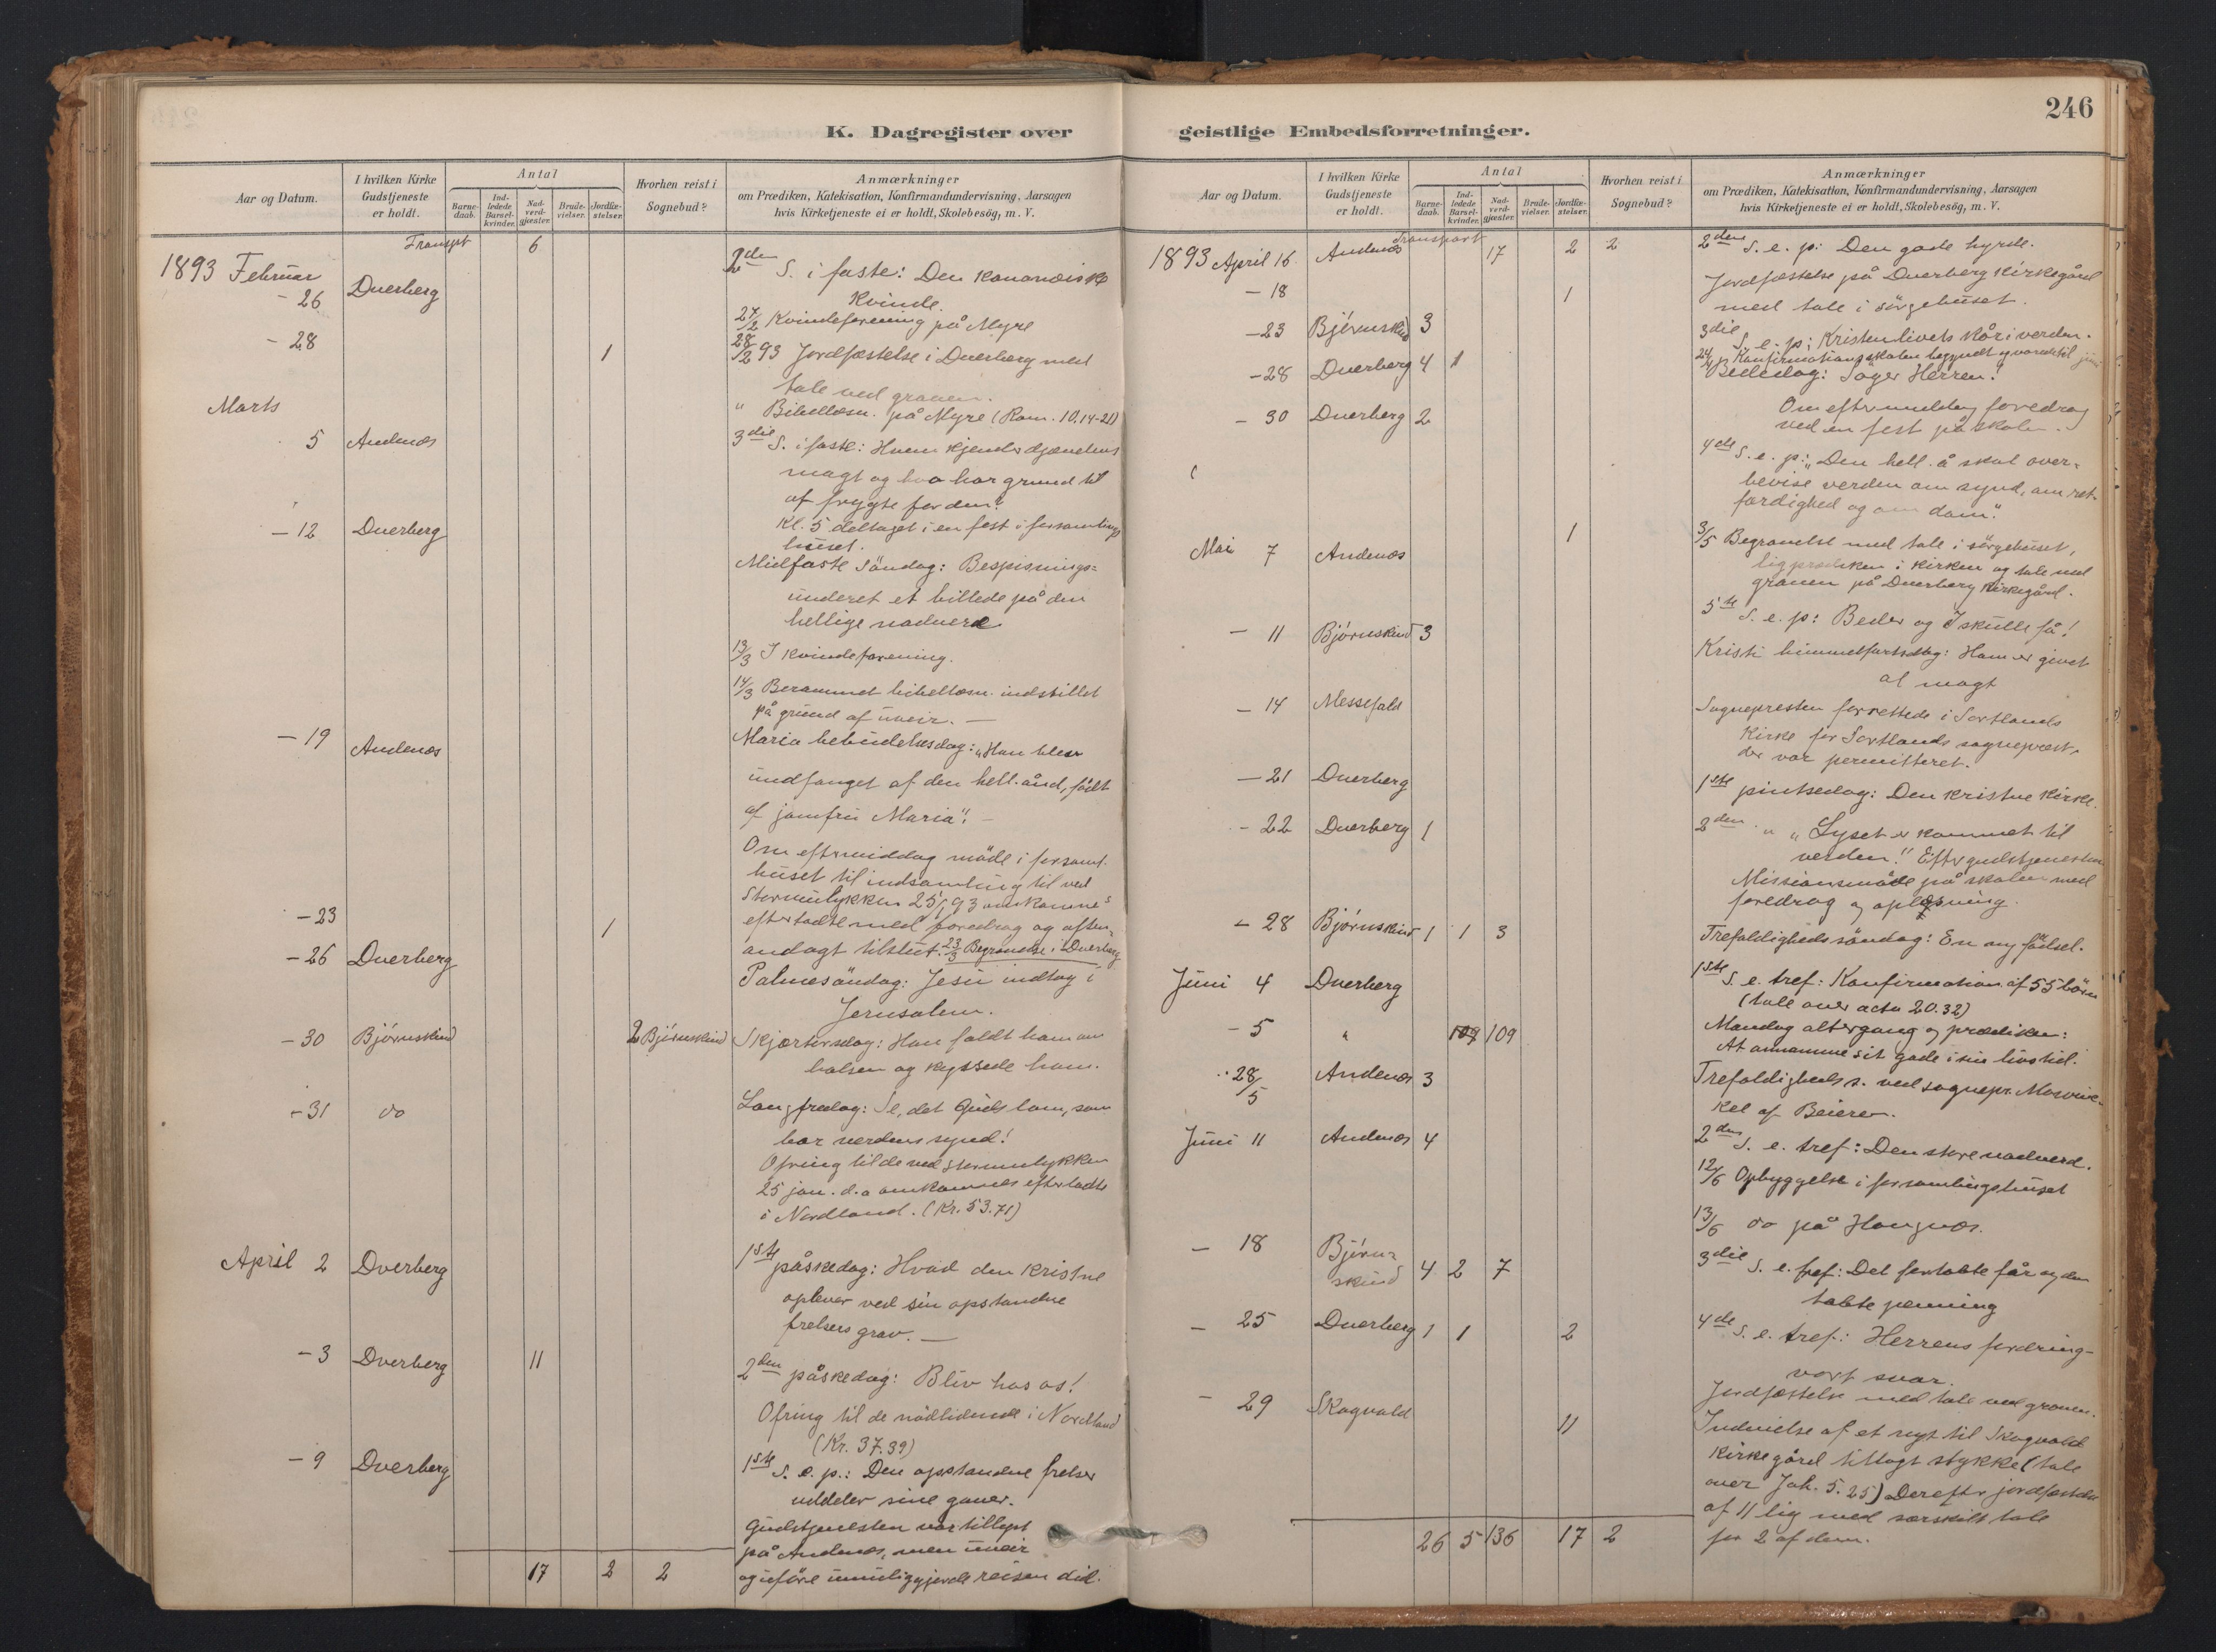 246
K. Dagregister over
Aar og Datum.
I hvilken Kirke
Gudstjeneste
er holdt.
Antal
Barne-
daab.
Ind-
ledede
Barsel-
kvinder.
Nad-
verd-
gjæster.
Brude-
vielser.
Jordfæ-
stelser.
Hvorhen reist i
Sognebud?
Anmærkninger
om Prædiken, Katekisation, Konfirmandundervisning, Aarsagen
hvis Kirketjeneste ei er holdt, Skolebesög, m. V.
Transpt 6
1893 Februar
- 26 Dverberg
2den S. i faste: Den kananæiske
kvinde.
27/2 Kvindeforening på Myre
- 28 1 28/2 93 Jordfæstelse i Dverberg med
tale ved graven.
" Bibellæsn. på Myre (Rom. 10.14-21)
Marts
5 Andenæs 3die S. i faste: Hvem kjender djævelens
magt og hvo har grund til
at frygte for den?
Kl. 5 deltaget i en fest i forsamlings
huset.
- 12 Dverberg
Midfaste Söndag: Bespisnings=
underet et billede på den
hellige nadvere
13/3 I kvindeforening.
14/3 Berammet bibellæsn. indstillet
på grund af uveir. -
- 19 Andenæs Maria bebudelsesdag: "Han blev
undfanget af den hell. ånd, födt
af jomfru Maria". -
Om eftermiddag möde i forsaml.
huset til indsamling til ved
Stormulykken 25/1 93 omkomnes
- 23 1 efterladte med foredrag og aften=
andagt tilslut. 23/3 Begravelse i Dverberg
- 26 Dverberg Palmesöndag: Jesu indtog i
Jerusalem.
- 30 Bjørnskind 2 Bjørnskind Skjærtorsdag: Han faldt ham om
halsen og kyssede ham.
- 31 do Langfredag: Se, det Guds lam, som
bar verdens synd!
Ofring til de ved stormulykken
25 jan. d.a omkomnes efterladte
i Nordland. (Kr. 53.71)
April 2 Dverberg 1ste påskedag: Hvad den kristne
oplever ved sin opstandne
frelsers grav. -
- 3 Dverberg 11 2den påskedag: Bliv hos os!
Ofring til de nödlidende i Nordland
(Kr. 37.39)
- 9 Dverberg 1ste S. e. p.: Den opstandne frelser
uddeler sine gaver.
Gudstjenesten var tillyst
på Andenæs, men uveir
17 2 2 og uföre umuliggjorde reisen did.
geistlige Embedsforretninger.
Aar og Datum.
I hvilken Kirke
Gudstjeneste
er holdt.
Antal
Barne-
daab.
Ind-
ledede
Barsel-
kvinder.
Nad-
verd-
gjæster.
Brude-
vielser.
Jordfæ-
stelser.
Hvorhen reist i
Sognebud?
Anmærkninger
om Prædiken, Katekisation, Konfirmandundervisning, Aarsagen
hvis Kirketjeneste ei er holdt, Skolebesög, m. V.
Transport
1893 April 16. Andenæs 17 2 2 2den S. e. p: Den gode hyrde.
- 18 1 Jordfæstelse på Dverberg kirkegård
med tale i sörgehuset.
- 23 Bjørnskind 3 3die S. e. p: Kristenlivets kår i verden.
24/4 Konfirmationsskolen begyndt og varede til juni
- 28 Dverberg 4 1 Bededag: Söger Herren!
Om eftermiddag foredrag
ved en fest på skolen.
- 30 Dverberg 2 4de S. e. p: "Den hell. å skal over=
bevise verden om synd, om ret
færdighed og om dom".
1 3/5 Begravelse med tale i sörgehuset,
ligprædiken i kirken og tale ved
graven på Dverberg kirkegård.
Mai 7 Andenæs 5te S. e. p: Beder og I skulle få!
- 11 Bjørnskind 3 Kristi himmelfartsdag: Ham er givet
al magt
- 14 Messefald Sognepresten forrettede i Sortlands
kirke for Sortlands sogneprest,
der var permitteret.
- 21 Dverberg 1ste pintsedag: Den kristne kirke.
- 22 Dverberg 1 2den " "Lyset er kommet til
verden". Efter gudstjenesten
Missionsmöde på skolen med
foredrag og oplæsning.
- 28 Bjørnskind 1 1 3 Trefoldigheds söndag: En ny födsel.
Juni 4 Dverberg 1ste S. e. tref: Konfirmation af 55 börn
(tale over acta 20.32)
- 5 " 109 109 Mandag altergang og prædiken:
At annamme sit gode i sin livstid.
28/5 Andenæs 3 Trefoldigheds s. ved sognepr. Mosvin-
kel af Beieren.
Juni 11 Andenæs 4 2den S. e. tref: Den store nadverd.
12/6 Opbyggelse i forsamlingshuset
13/6 do på Haugnæs.
- 18 Bjørn=
skind 4 2 7 3die S. e. tref: Det fortabte får og den
tabte penning
- 25 Dverberg 1 1 2 4de S. e. tref: Herrens fordring-
vort svar.
Jordfæstelse med tale ved graven.
- 29 Skogvold 11 Indvielse af et nyt til Skogvold
kirkegård tillagt stykke (tale
over Joh. 5.25) Derefter jordfæstelse
af 11 lig med særskilt tale
for 2 af dem.
26 5 136 17 2